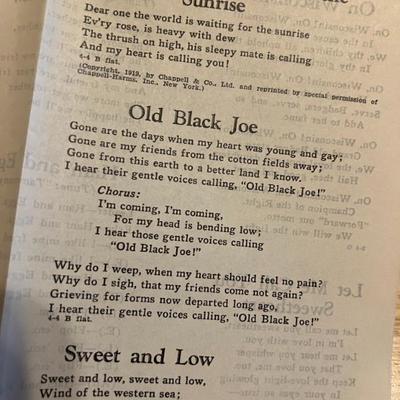 Sunrise
Dear one the world is waiting for the sunrise
Ev'ry rose, is heavy with dew
The thrush on high, his sleepy mate is calling
And my heart is calling you!
4-4 B flat.
(Copyright, 1919, by Chappell & Co., Ltd. and reprinted by special permission of
Chappell-Harms, Inc., New York.)
Old Black Joe
Gone are the days when my heart was young and gay;
Gone are my friends from the cotton fields away;
Gone from this earth to a better land I know.
I hear their gentle voices calling, "Old Black Joe!"
Chorus:
I'm coming, I'm coming,
For my head is bending low;
I hear those gentle voices calling
"Old Black Joe!"
Why do I weep, when my heart should feel no pain?
Why do I sigh, that my friends come not again?
Grieving for forms now departed long ago,
I hear their gentle voices calling, "Old Black Joe!"
4-4 B flat.
Sweet and Low
Sweet and low, sweet and low,
Wind of the western sea;